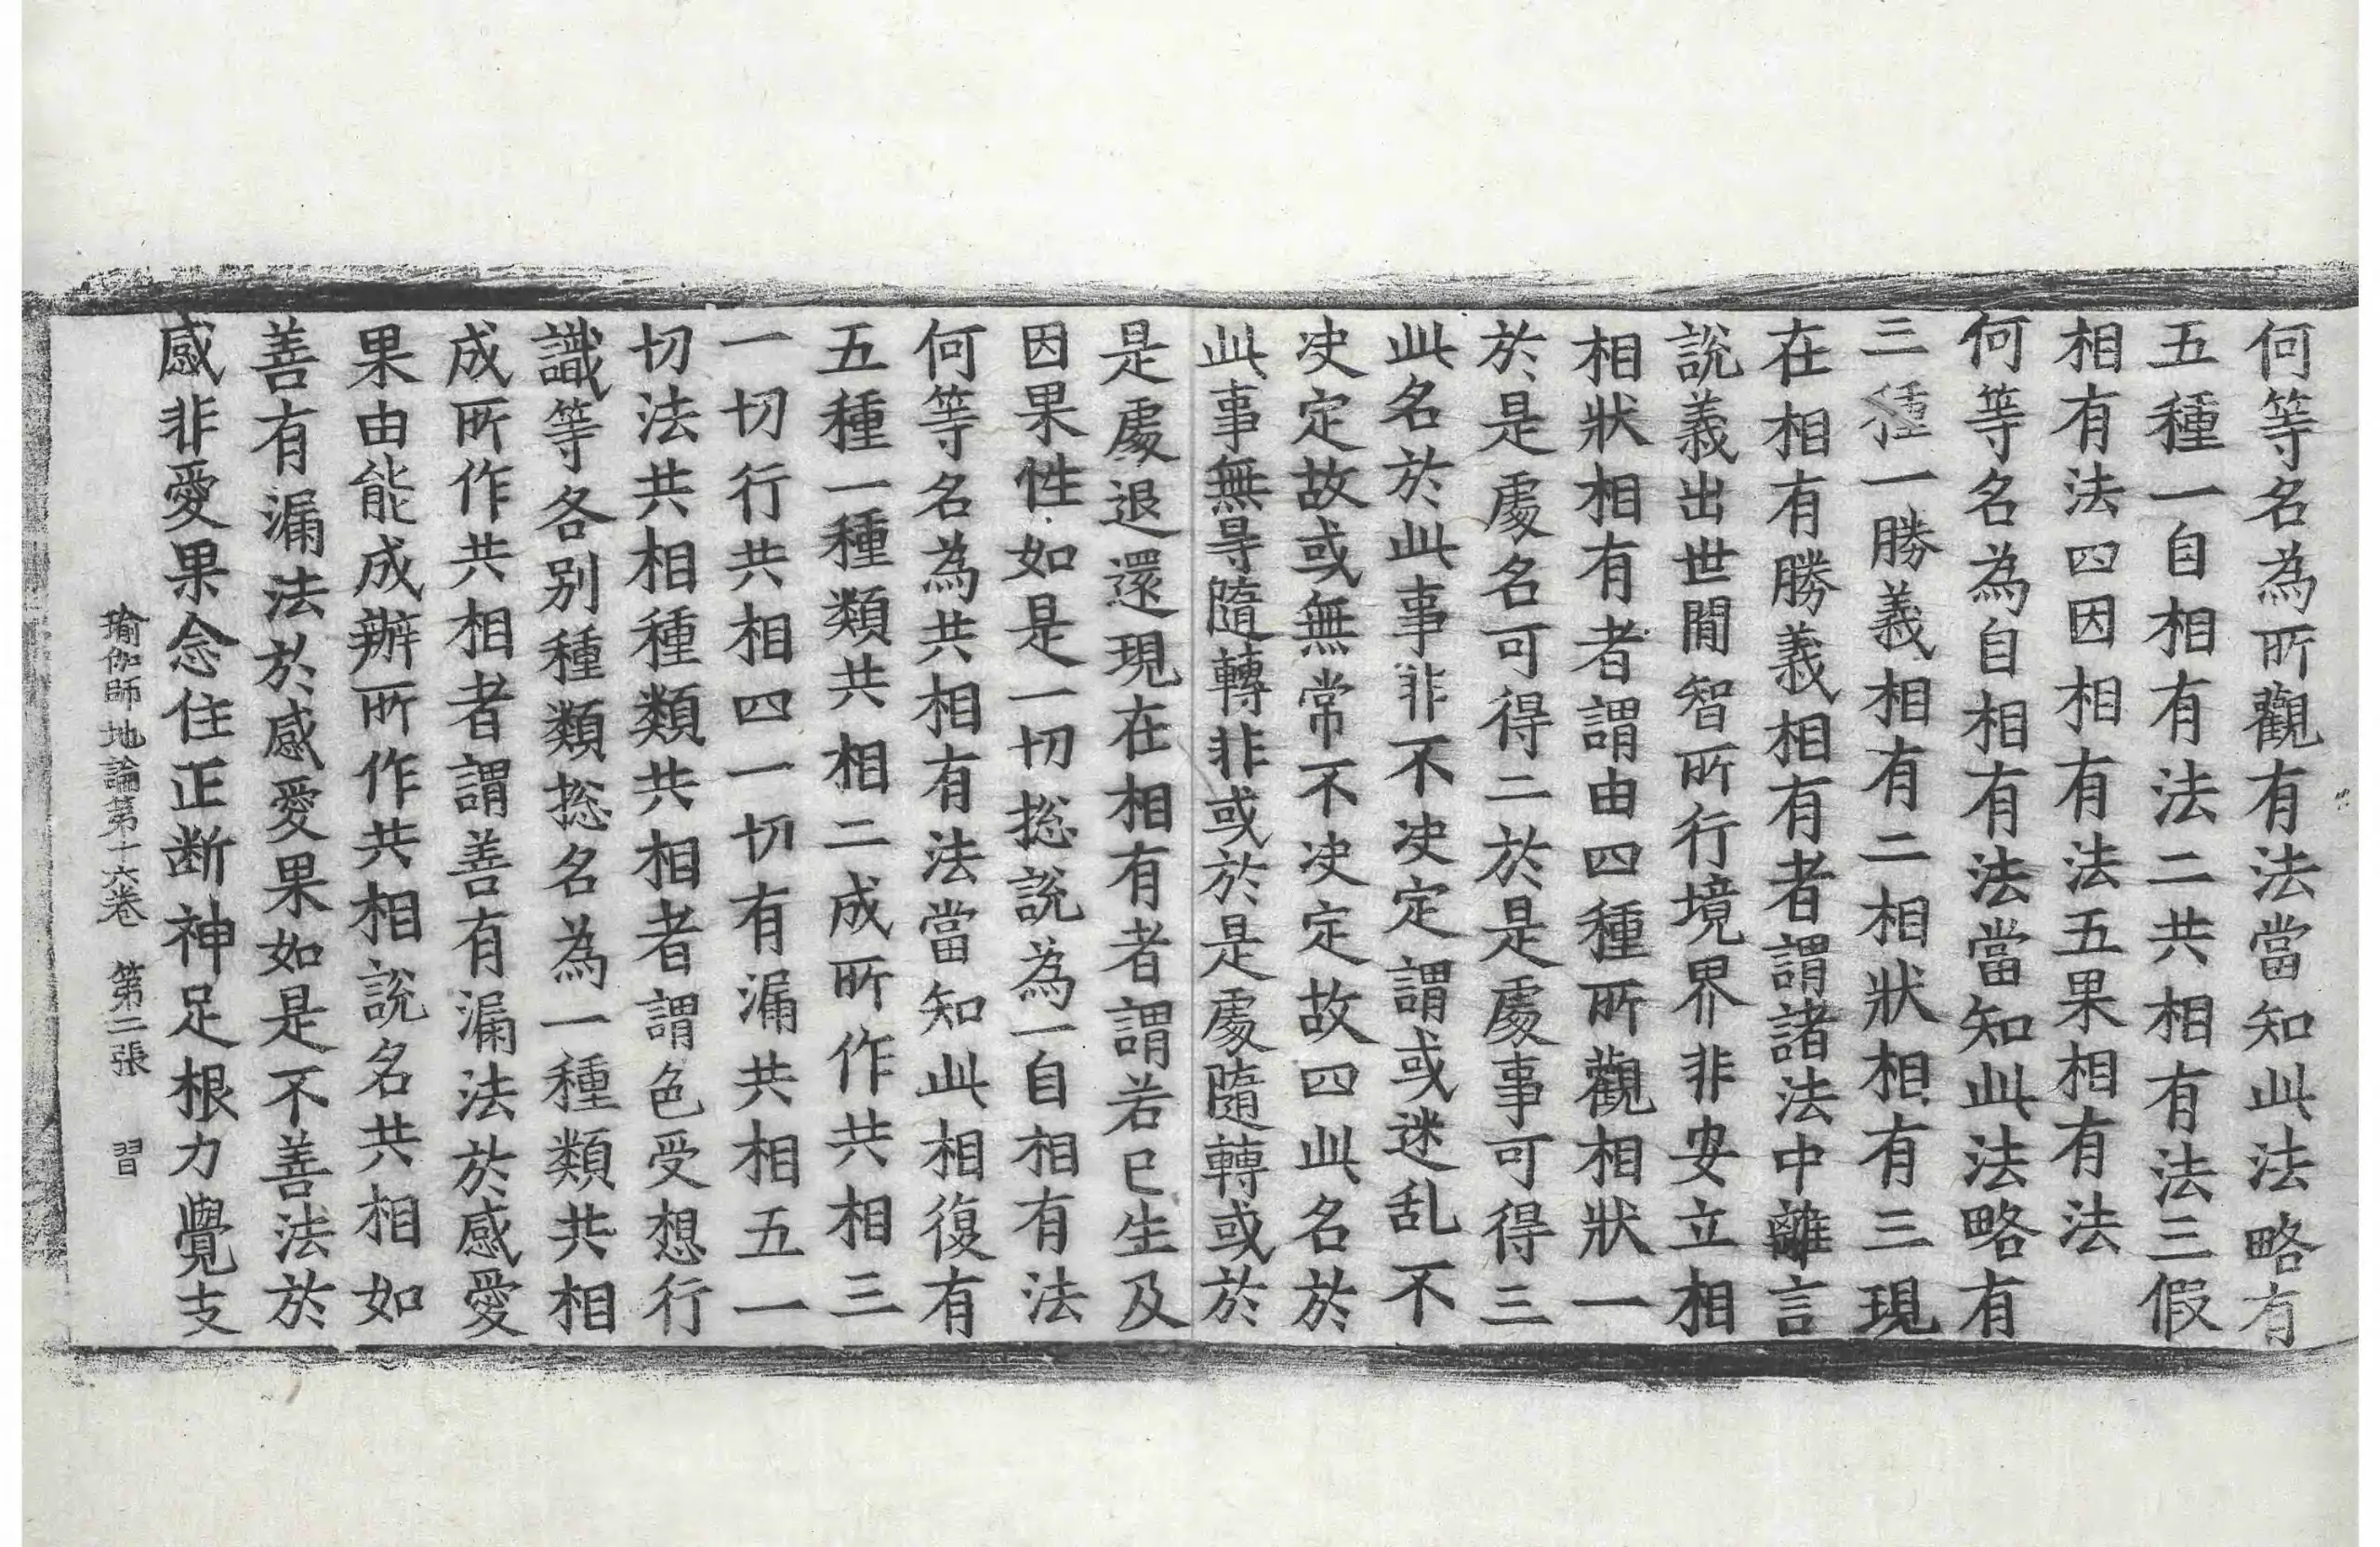 何等名為所觀有法當知此法略有
五種一自相有法二共相有法三假
相有法四因相有法五果相有法
何等名為自相有法當知此法略有
三種一勝義相有二相狀相有三現
在相有勝義相有者謂諸法中離言
說義出世間智所行境界非安立相
相狀相有者謂由四種所觀相狀一
於是處名可得二於是處事可得三
此名於此事非不决定謂或迷乱不
决定故或無常不决定故四此名於
此事無㝵隨轉非或於是處隨轉或於
是處退還現在相有者謂若已生及
因果性如是一切捴說為一自相有法
何等名為共相有法當知此相復有
五種一種類共相二成所作共相三
一切行共相四一切有漏共相五一
切法共相種類共相者謂色受想行
識等各別種類捴名為一種類共相
成所作共相者謂善有漏法於感愛
果由能成辦所作共相說名共相如
善有漏法於感愛果如是不善法於
感非愛果念住正断神足根力覺支
瑜伽師地論第十六卷 第二張 習